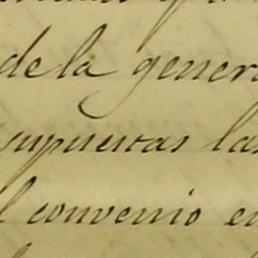 de la gener
supuestas las
l convenio en